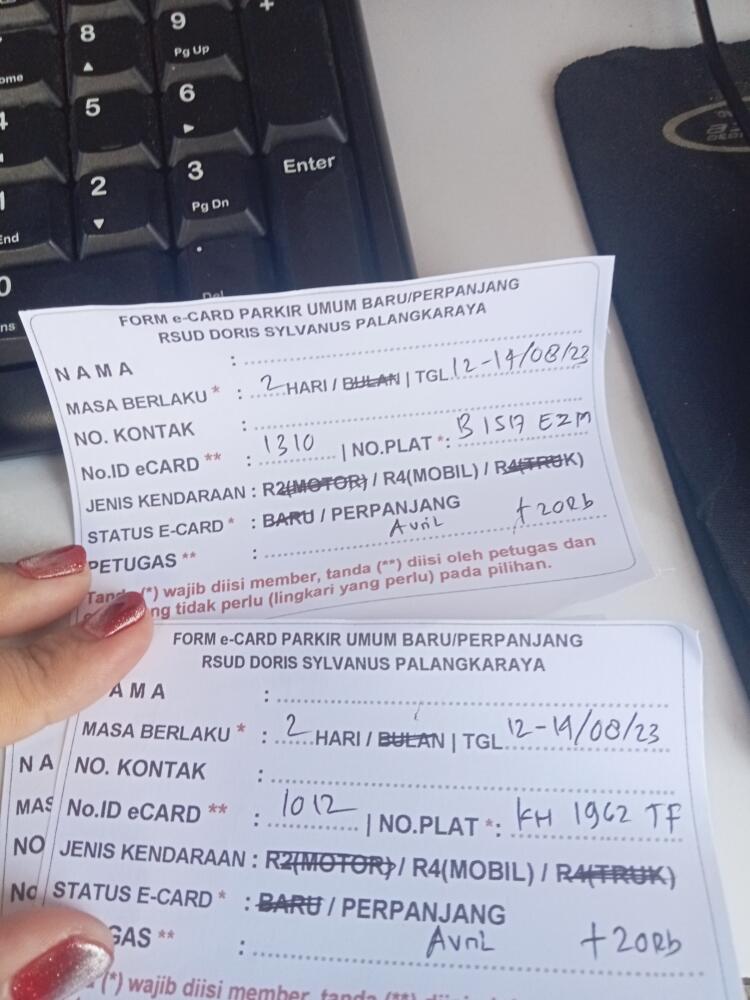 8
9
Pg Up
+
ome
4
5
6
1
2
3
Pg Dn
Enter
End
0
.
Del
ns
FORM e-CARD PARKIR UMUM BARU/PERPANJANG
RSUD DORIS SYLVANUS PALANGKARAYA
NAMA :
MASA BERLAKU * : 2 HARI / BULAN | TGL 12-14/08/23
NO. KONTAK :
No.ID eCARD ** : 1310 | NO.PLAT *: B 1517 EZM
JENIS KENDARAAN : R2(MOTOR) / R4(MOBIL) / R4(TRUK)
STATUS E-CARD * : BARU / PERPANJANG
PETUGAS ** : Avril +20Rb
(*) wajib diisi member, tanda (**) diisi oleh petugas dan
ng tidak perlu (lingkari yang perlu) pada pilihan.
FORM e-CARD PARKIR UMUM BARU/PERPANJANG
RSUD DORIS SYLVANUS PALANGKARAYA
AMA :
MASA BERLAKU * : 2 HARI / BULAN | TGL 12-14/08/23
NO. KONTAK :
No.ID eCARD ** : 1012 | NO.PLAT *: KH 1962 TF
JENIS KENDARAAN : R2(MOTOR) / R4(MOBIL) / R4(TRUK)
STATUS E-CARD * : BARU / PERPANJANG
GAS ** : Avril +20Rb
(*) wajib diisi member, tanda (**) diisi oleh
NA
MAS
NO
No